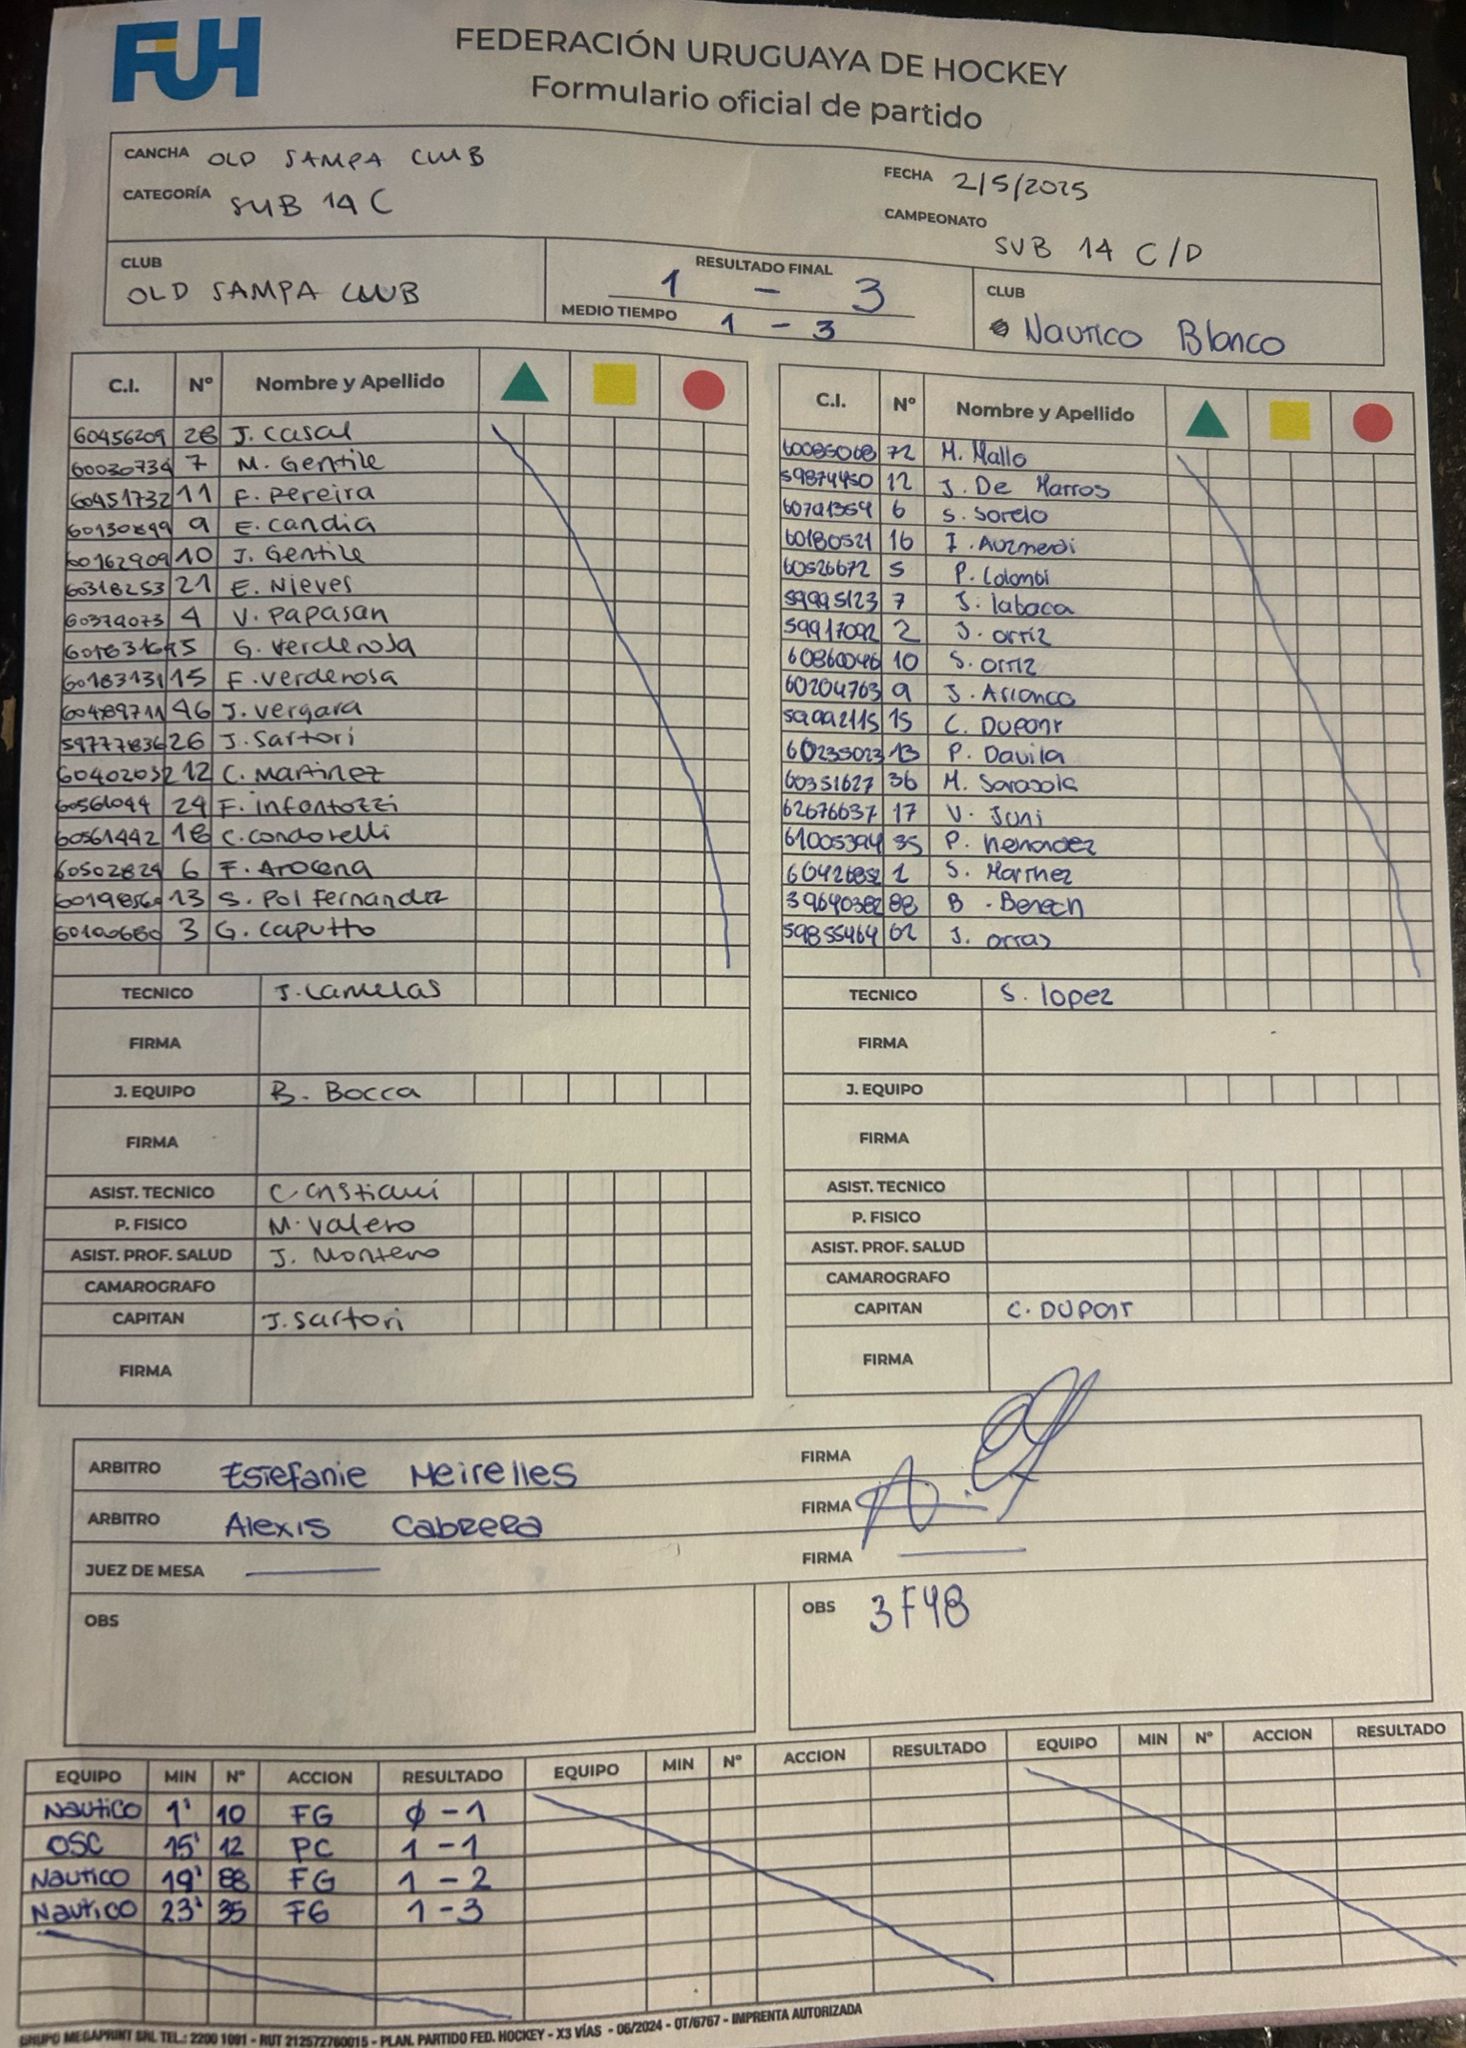 FUH
FEDERACIÓN URUGUAYA DE HOCKEY
Formulario oficial de partido
CANCHA OLD SAMPA CLUB
FECHA 2/5/2025
CATEGORÍA SUB 14 C
CAMPEONATO SUB 14 C/D
CLUB OLD SAMPA CLUB
RESULTADO FINAL 1 - 3
MEDIO TIEMPO 1 - 3
CLUB Nautico Blanco
C.I. Nº Nombre y Apellido
60456209 28 J. Casal
60030734 7 M. Gentile
60451732 11 F. Pereira
60130899 9 E. Candia
60162909 10 J. Gentile
60318253 21 E. Nieves
60374073 4 V. Papasan
5 G. Verderosa
60183131 15 F. Verderosa
60489711 46 J. Vergara
59777836 26 J. Sartori
60402032 12 C. Martinez
24 F. Infantozzi
60561442 18 C. Condorelli
60502824 6 F. Arocena
13 S. Pol Fernandez
60100680 3 G. Caputto
TECNICO J. Canelas
FIRMA
J. EQUIPO B. Bocca
FIRMA
ASIST. TECNICO C. Cristiani
P. FISICO M. Valero
ASIST. PROF. SALUD J. Montero
CAMAROGRAFO
CAPITAN J. Sartori
FIRMA
C.I. Nº Nombre y Apellido
72 M. Mallo
59874450 12 J. De Marros
6 S. Sorelo
60180521 16
60526672 5 P. Colombi
59995123 7 J. labaca
59917092 2 J. ortiz
60860046 10 S. ortiz
60204763 9 J. Arionco
59992115 15 C. Dupont
60235023 13 P. Davila
60351627 36 M. Sarasola
62676637 17 V. Juni
61005394 35 P. Menendez
60426852 1 S. Martinez
39640382 88 B. Benech
59855464 62 J. orras
TECNICO S. lopez
FIRMA
J. EQUIPO
FIRMA
ASIST. TECNICO
P. FISICO
ASIST. PROF. SALUD
CAMAROGRAFO
CAPITAN C. DUPONT
FIRMA
ARBITRO Estefanie Meirelles FIRMA
ARBITRO Alexis Cabrera FIRMA
JUEZ DE MESA FIRMA
OBS
OBS 3F4B
EQUIPO MIN Nº ACCION RESULTADO EQUIPO MIN Nº ACCION RESULTADO EQUIPO MIN Nº ACCION RESULTADO
Nautico 1' 10 FG 0 - 1
OSC 15' 12 PC 1 - 1
Nautico 19' 88 FG 1 - 2
Nautico 23' 35 FG 1 - 3
GRUPO MEGAPRINT SRL TEL.: 2200 1091 - RUT 212572760015 - PLAN. PARTIDO FED. HOCKEY - X3 VÍAS - 06/2024 - OT/6767 - IMPRENTA AUTORIZADA